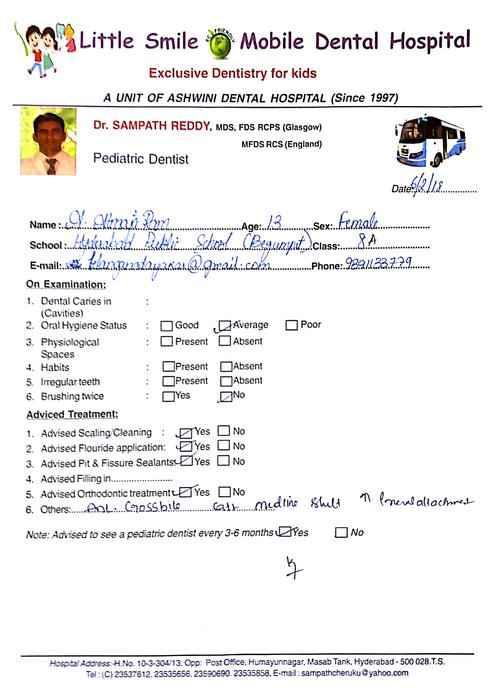 Little Smile Mobile Dental Hospital
Exclusive Dentistry for kids
A UNIT OF ASHWINI DENTAL HOSPITAL (Since 1997)
Dr. SAMPATH REDDY, MDS, FDS RCPS (Glasgow)
MFDS RCS (England)
Pediatric Dentist
Date: 6/2/18
Name: Ram Age: 13 Sex: Female
School: Hyderabad Public School (Begumpet) Class: 8A
E-mail: @gmail.com Phone:
On Examination:
1. Dental Caries in :
(Cavities)
2. Oral Hygiene Status : Good Average Poor
3. Physiological : Present Absent
Spaces
4. Habits : Present Absent
5. Irregular teeth : Present Absent
6. Brushing twice : Yes No
Adviced Treatment:
1. Advised Scaling/Cleaning : Yes No
2. Advised Flouride application: Yes No
3. Advised Pit & Fissure Sealants Yes No
4. Advised Filling in
5. Advised Orthodontic treatment Yes No
6. Others: Crossbite midline shift
Note: Advised to see a pediatric dentist every 3-6 months Yes No
Hospital Address:-H.No. 10-3-304/13, Opp: Post Office, Humayunnagar, Masab Tank, Hyderabad - 500 028.T.S.
Tel : (C) 23537612, 23535656, 23590690, 23535858, E-mail : sampathcheruku@yahoo.com